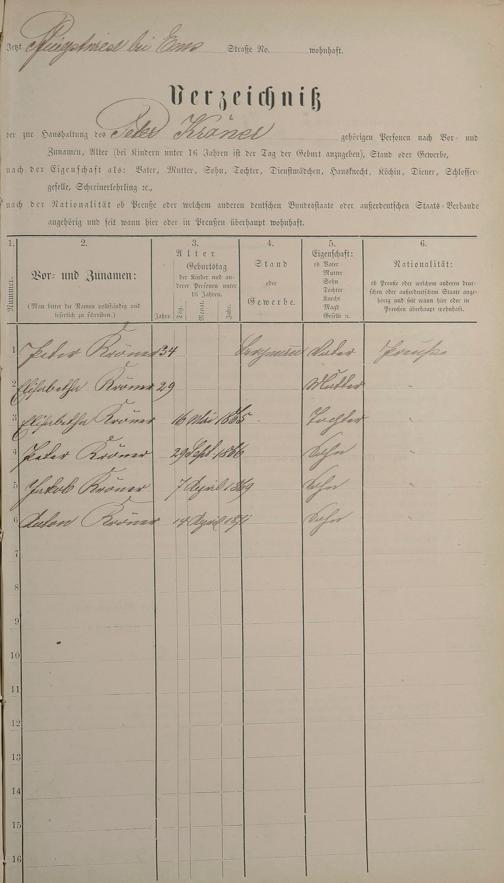 Jetzt bei Ems Straße No. wohnhaft.
Verzeichniß
der zur Haushaltung des Peter Kröner gehörigen Personen nach Vor- und
Zunamen, Alter (bei Kindern unter 16 Jahren ist der Tag der Geburt anzugeben), Stand oder Gewerbe,
nach der Eigenschaft als: Vater, Mutter, Sohn, Tochter, Dienstmädchen, Hausknecht, Köchin, Diener, Schlosser-
geselle, Schreinerlehrling ꝛc.,
nach der Nationalität ob Preuße oder welchem anderen deutschen Bundesstaate oder außerdeutschen Staats-Verbande
angehörig und seit wann hier oder in Preußen überhaupt wohnhaft.
1. 2. 3. 4. 5. 6.
Nummer.
Vor- und Zunamen:
(Man bittet die Namen vollständig und
leserlich zu schreiben.)
Alter
Geburtstag
der Kinder und an-
derer Personen unter
16 Jahren.
Jahre. Tag. Monat. Jahr.
Stand
oder
Gewerbe.
Eigenschaft:
ob Vater
Mutter
Sohn
Tochter
Knecht
Magd
Geselle u.
Nationalität:
ob Preuße oder welchem anderen deut-
schen oder außerdeutschen Staate ange-
hörig und seit wann hier oder in
Preußen überhaupt wohnhaft.
1 Peter Kröner 34 Bergmann Vater Preuße
2 Elisabetha Kröner 29 Mutter "
3 Elisabetha Kröner 16 Mai 1865 Tochter "
4 Peter Kröner 29 Sept 1866 Sohn "
5 Jakob Kröner 7 April 1869 Sohn "
6 Anton Kröner 14 April 1871 Sohn "
7
8
9
10
11
12
13
14
15
16